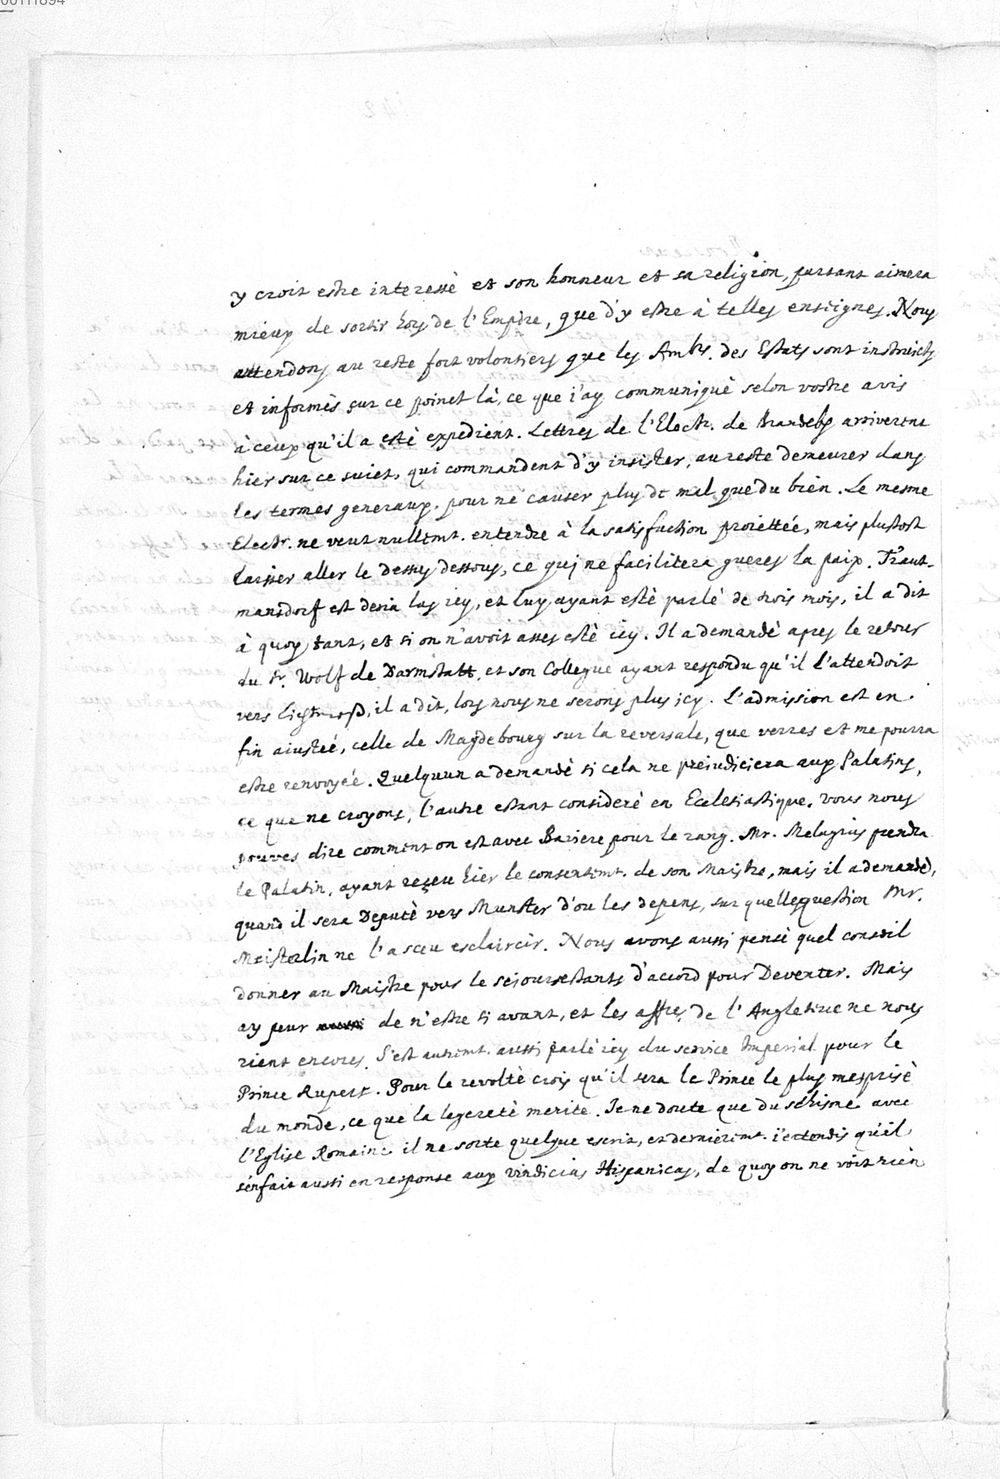 00111894
y croit estre interessè et son honneur et sa religion, partant aimera
mieux de sortir hors de l'Empire, que d'y estre à telles enseignes. Nous
attendons au reste fort volontiers que les Ambrs. des Estats sont instruicts
et informès sur ce poinct là, ce que i'ay communiquè selon vostre avis
à ceux qu'il a estè expedient. Lettres de l'Elect. de Brandebg arriverent
hier sur ce suiet, qui commandent d'y insister, au reste demeurer dans
les termes generaux, pour ne causer plus de mal que du bien. Le mesme
Electr. ne veut nullemt. entendre à la satisfaction proiettée, mais plustost
laisser aller le dessus dessous, ce qui ne facilitera gueres la paix. Traut-
mansdorf est desia las icy, et luy ayant estè parlé de trois mois, il a dit
à quoy tant, et si on n'avoit asses estè icy. Il a demandè apres le retour
du Sr. Wolf de Darmstatt, et son Collegue ayant respondu qu'il l'attendoit
vers, il a dit, lors nous ne serons plus icy. L'admission est en
fin aiusteé, celle de Magdebourg sur la reversale, que verres et me pourra
estre renvoyée. Quelquun a demandè si cela ne preiudiciera aux Palatins,
ce que ne croyons, l'autre estant considerè en Ecclesiastique. Vous nous
pouves dire comment on est avec Baviere pour le rang. Mr. Melagius prendra
le Palatin, ayant reçeu hier le consentemt. de son Maistre, mais il a demandè,
quand il sera Deputè vers Munster d'ou les depens, sur quelle question Mr.
Meisterlin ne l'a sceu esclaircir. Nous avons aussi pensè quel conseil
donner au Maistre pour le seiour estants d'accord pour Deventer. Mais
ay peur de n'estre si avant, et les affres. de l'Angleterre ne nous
rient encores. S'est autremt. aussi parlè icy du service Imperial pour le
Prince Rupert. Pour le revoltè crois qu'il sera le Prince le plus mesprisè
du monde, ce que la legeretè merite. Je ne doute que du schisme avec
l'Eglise Romaine il ne sorte quelque escrit, et dernieremt. i'entendis qu'il
s'en fait aussi en response aux vindicias Hispanicas, de quoy on ne voit rien